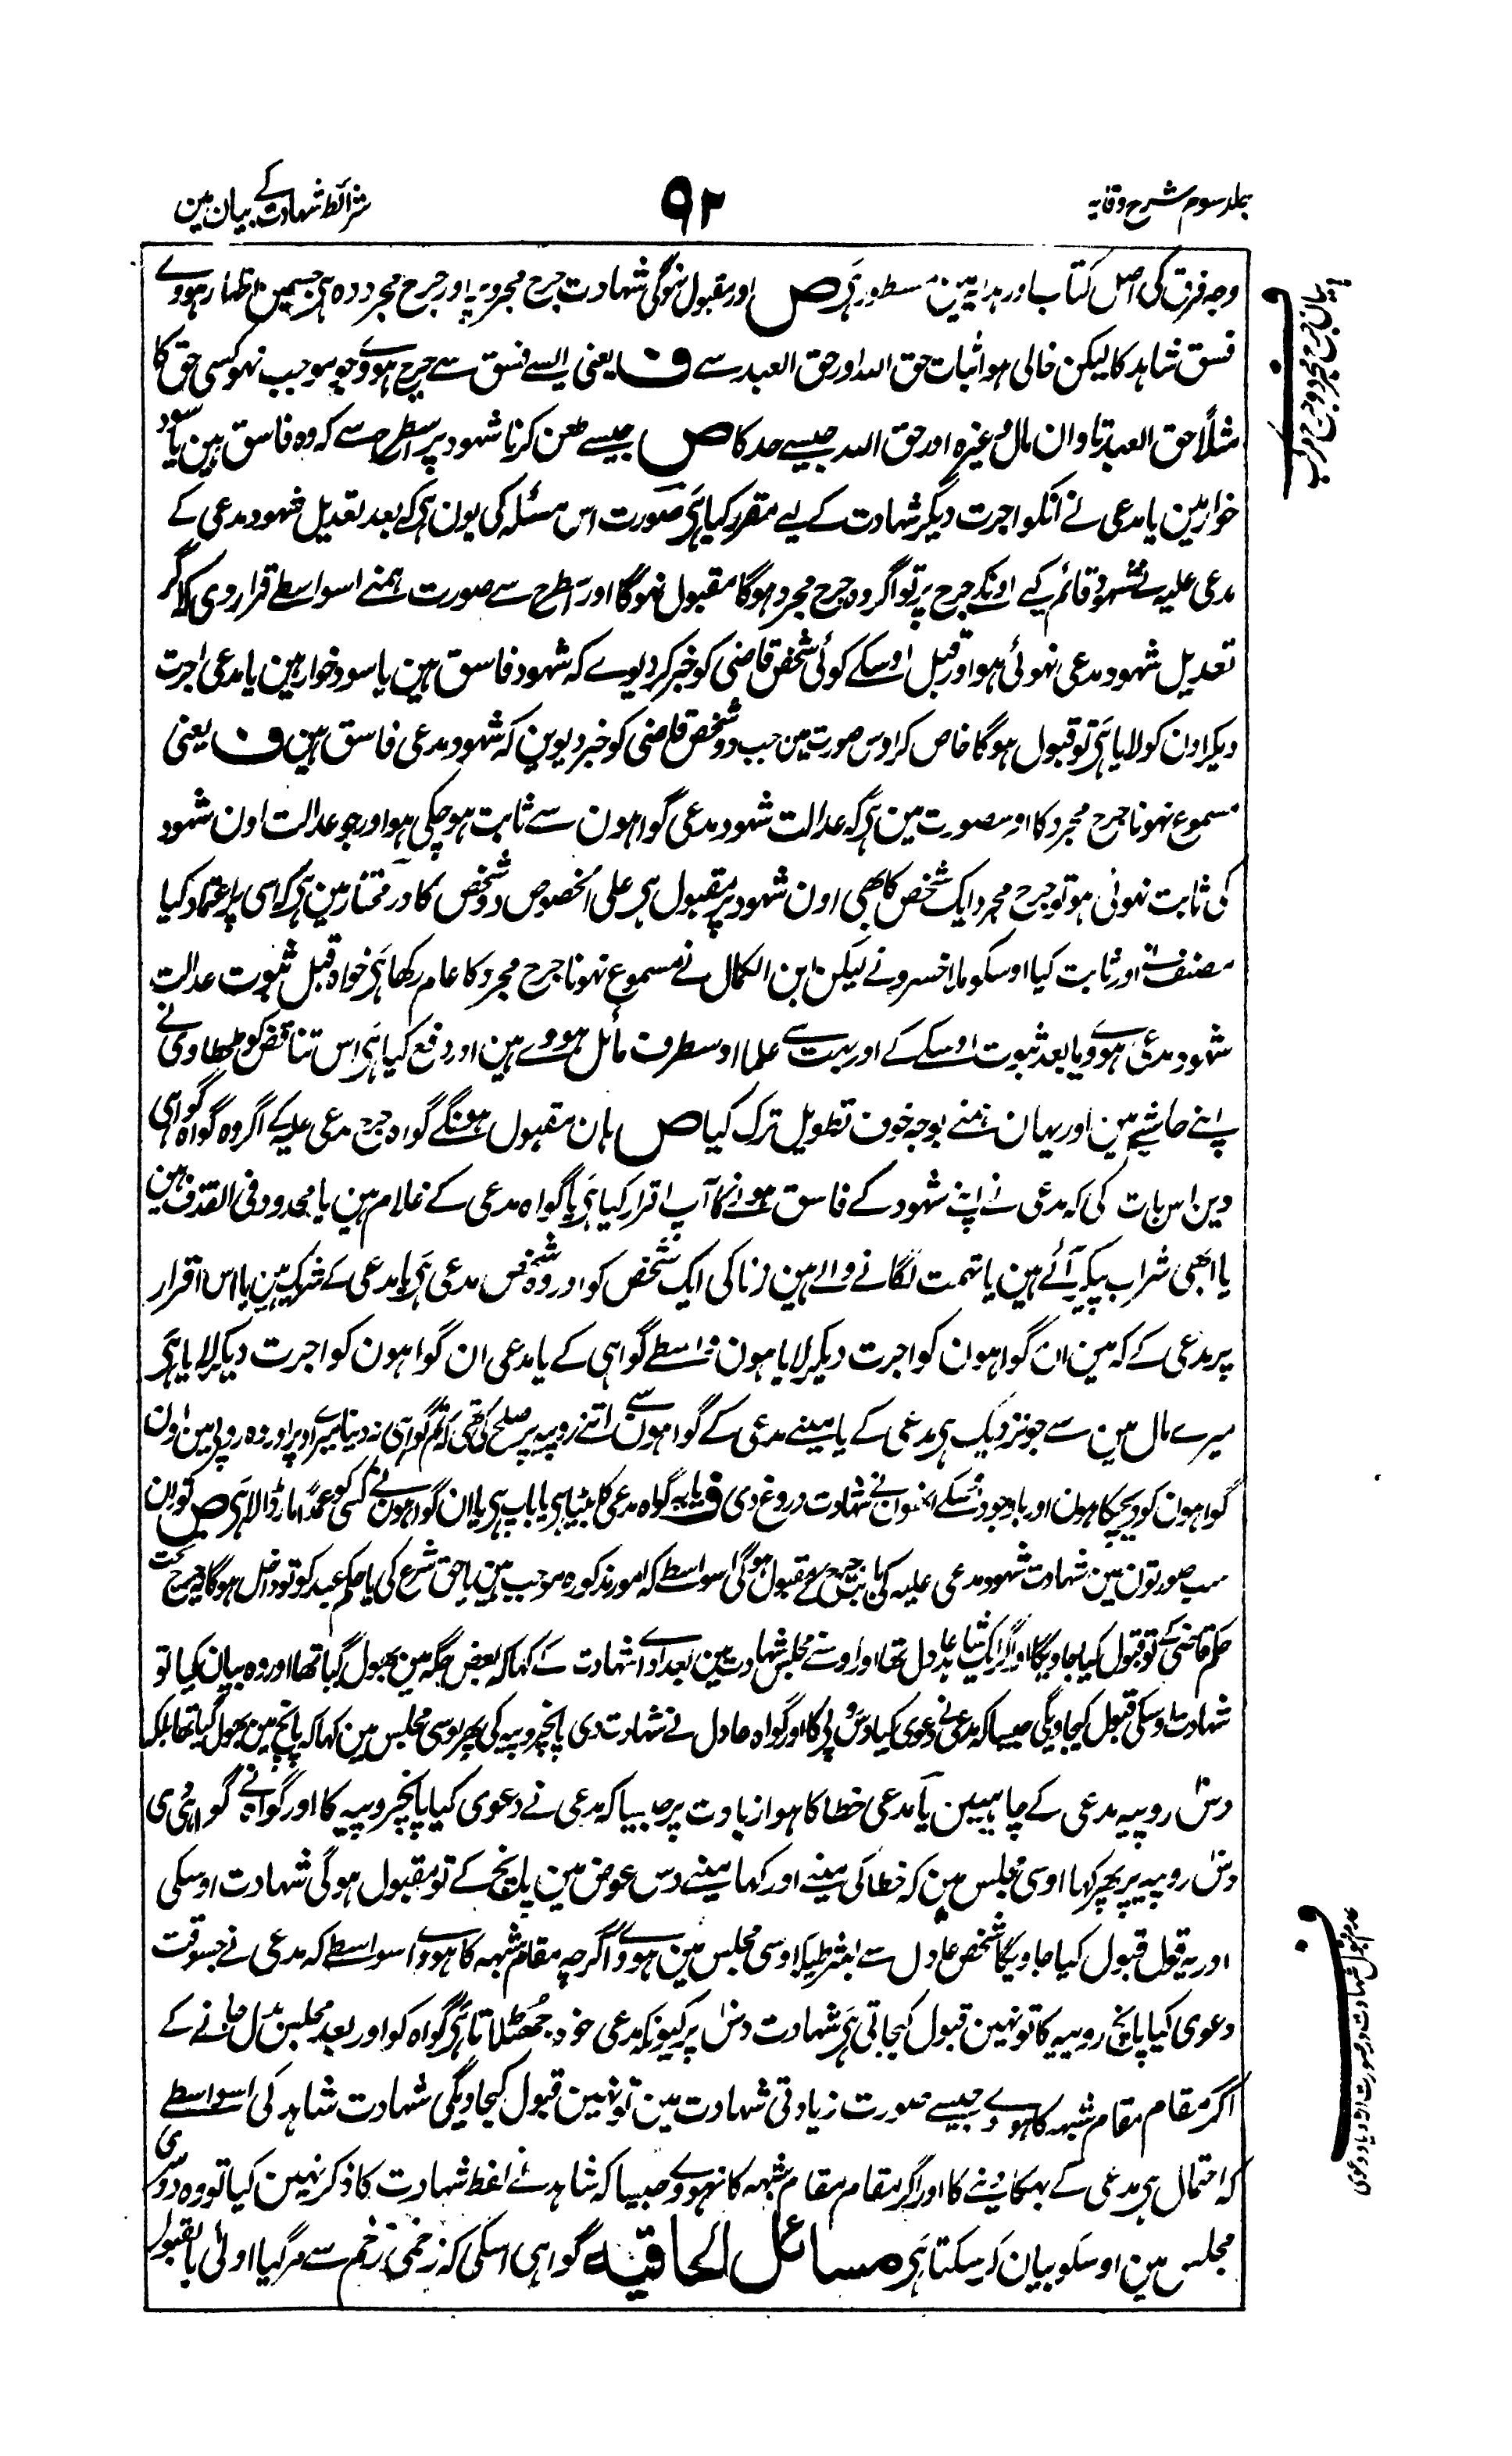 جلد سوم شرح وقایہ
۹۲
شرائط شہادت کے بیان مین
وجہ فرق کی اصل کتاب اور ہدایہ مین مسطور ہی ص اور مقبول نہوگی شہادت جرح مجرد پر اور جرح مجرد وہ ہی جسمین اظہار ہووے
فسق شاہد کا لیکن خالی ہو اثبات حق اللہ اور حق العبد سے ف یعنی ایسے فسق سے جرح ہووے جو موجب نہو کسی حق کا
مثلاً حق العبد تاوان مال وغیرہ اور حق اللہ جیسے حد کا ص جیسے طعن کرنا شہود پر اسطرح سے کہ وہ فاسق ہین یا سود
خوار ہین یا مدعی نے انکو اجرت دیکر شہادت کے لیے مقرر کیا ہی صورت اس مسئلہ کی یون ہی کہ بعد تعدیل شہود مدعی کے
مدعی علیہ نے شہود قائم کیے اونکے جرح پر تو اگر وہ جرح مجرد ہوگا مقبول نہوگا اور اسطرح سے صورت ہمنے اسواسطے قرار دی کہ اگر
تعدیل شہود مدعی نہوئی ہو اور قبل اوسکے کوئی شخص قاضی کو خبر کر دیوے کہ شہود فاسق ہین یا سود خوار ہین یا مدعی اجرت
دیکر اون کو لایا ہی تو قبول ہوگا خاص کر اوس صورت مین جب دو شخص قاضی کو خبر دیوین کہ شہود مدعی فاسق ہین ف یعنی
مسموع نہونا جرح مجرد کا اوسصورت مین ہی کہ عدالت شہود مدعی گواہون سے ثابت ہو چکی ہو اور جو عدالت اون شہود
کی ثابت نہوئی ہو تو جرح مجرد ایک شخص کا بھی اون شہود پر مقبول ہی علی الخصوص دو شخص کا در مختار مین ہی کہ اسی پر اعتماد کیا
مصنف نے اور ثابت کیا اوسکو ملا خسرو نے لیکن ابن الکمال نے مسموع نہونا جرح مجرد کا عام رکھا ہی خواہ قبل ثبوت عدالت
شہود مدعی ہووے یا بعد ثبوت اوسکے کے اور بہت سے علما اوسطرف مائل ہووے ہین اور دفع کیا ہی اس تناقض کو طحطاوی نے
اپنے حاشیے مین اور یہان ہمنے بوجہ خوف تطویل ترک کیا ص ہان مقبول ہونگے گواہ جرح مدعی علیہ کے اگر وہ گواہ گواہی
دین اس بات کی کہ مدعی نے اپنے شہود کے فاسق ہونے کا آپ اقرار کیا ہی یا گواہ مدعی کے غلام ہین یا محدود فی القذف ہین
یا ابھی شراب پیکر آئے ہین یا تہمت لگانے والے ہین زنا کی ایک شخص کو اور وہ شخص مدعی ہی یا مدعی کے شریک ہین یا اس اقرار
پر مدعی کے کہ مین ان گواہون کو اجرت دیکر لایا ہون واسطے گواہی کے یا مدعی ان گواہون کو اجرت دیکر لایا ہی
میرے مال مین سے جو نزدیک ہی مدعی کے یا مینے مدعی کے گواہون سے اتنے روپیہ پر صلح کی تھی کہ تم گواہی نہ دینا میرے اوپر اور وہ روپے مین اون
گواہون کو دیچکا ہون اور باوجود اسکے انھوان نے شہادت دروغ دی ف یا یہ گواہ مدعی کا بیٹا ہی یا باپ ہی یا ان گواہون نے کسی کو عمداً مار ڈالا ہی ص تو ان
سب صورتون مین شہادت شہود مدعی علیہ کی بابت جرح کے مقبول ہوگی اسواسطے کہ امور مذکورہ موجب ہین یا حق شرع کی یا حکم عبد کو تو داخل ہوگا یہ جرح تحت
حکم قاضی کے تو قبول کیا جاویگا اور اگر ایک شاہد عادل تھا اور اوسنے مجلس شہادت مین بعد ادا شہادت کے کہا کہ بعض جگہ مین بھول گیا تھا اور وہ بیان کیا تو
شہادت اوسکی قبول کیجاویگی جیسا کہ مدعی نے دعوی کیا دس روپے کا اور گواہ عادل نے شہادت دی پانچ روپیہ کی پھر اوسی مجلس مین کہا کہ پانچ مین بھول گیا تھا بلکہ
دس روپیہ مدعی کے چاہیین یا مدعی خطا کا ہو از یادت پر جیسا کہ مدعی نے دعوی کیا پانچ روپیہ کا اور گواہ نے گواہی دی
دس روپیہ پر پھر کہا اوسی مجلس مین کہ خطا کی مینے اور کہا مینے دس عوض مین پانچ کے تو مقبول ہوگی شہادت اوسکی
اور یہ قول قبول کیا جاویگا شخص عادل سے بشرطیکہ اوسی مجلس مین ہووے اگرچہ مقام شبہہ کا ہووے اسواسطے کہ مدعی نے جسوقت
دعوی کیا پانچ روپیہ کا تو نہین قبول کیجاتی ہی شہادت دس پر کیونکہ مدعی خود جھٹلاتا ہی گواہ کو اور بعد مجلس بدل جانے کے
اگر مقام مقام شبہہ کا ہووے جیسے صورت زیادتی شہادت مین تو نہین قبول کیجاویگی شہادت شاہد کی اسواسطے
کہ احتمال ہی مدعی کے بہکا دینے کا اور اگر مقام مقام شبہہ کا نہووے جیسا کہ شاہد نے لفظ شہادت کا ذکر نہین کیا تو وہ دوسری
مجلس مین اوسکو بیان کر سکتا ہی مسائل الحاقیہ گواہی اسکی کہ زخمی زخم سے مر گیا اولی بالقبول
بیان جرح مجرد و جرح مرکب